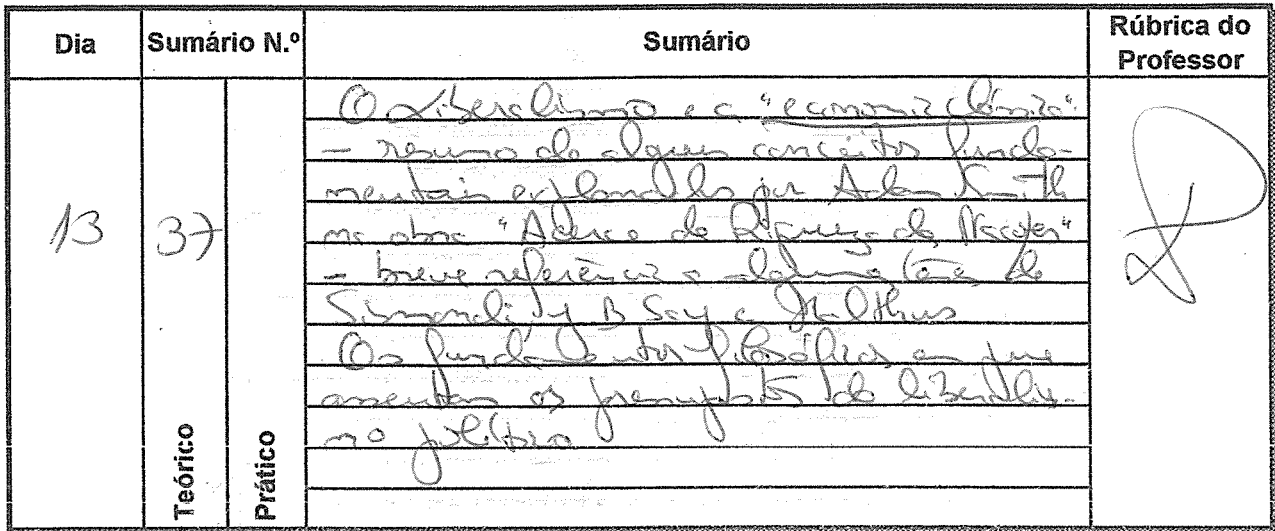 Dia
Sumário N.º
Sumário
Rúbrica do
Professor
O Liberalismo e a "economia clássica"
- resumo de alguns conceitos funda-
mentais explanados por Adam Smith
na obra "Acerca da Riqueza das Nações"
- breve referência a algumas de
Sismondi, J B Say e Malthus
Os fundamentos filosóficos em que
assentam os pressupostos do liberalis-
mo político
13
37
Teórico
Prático